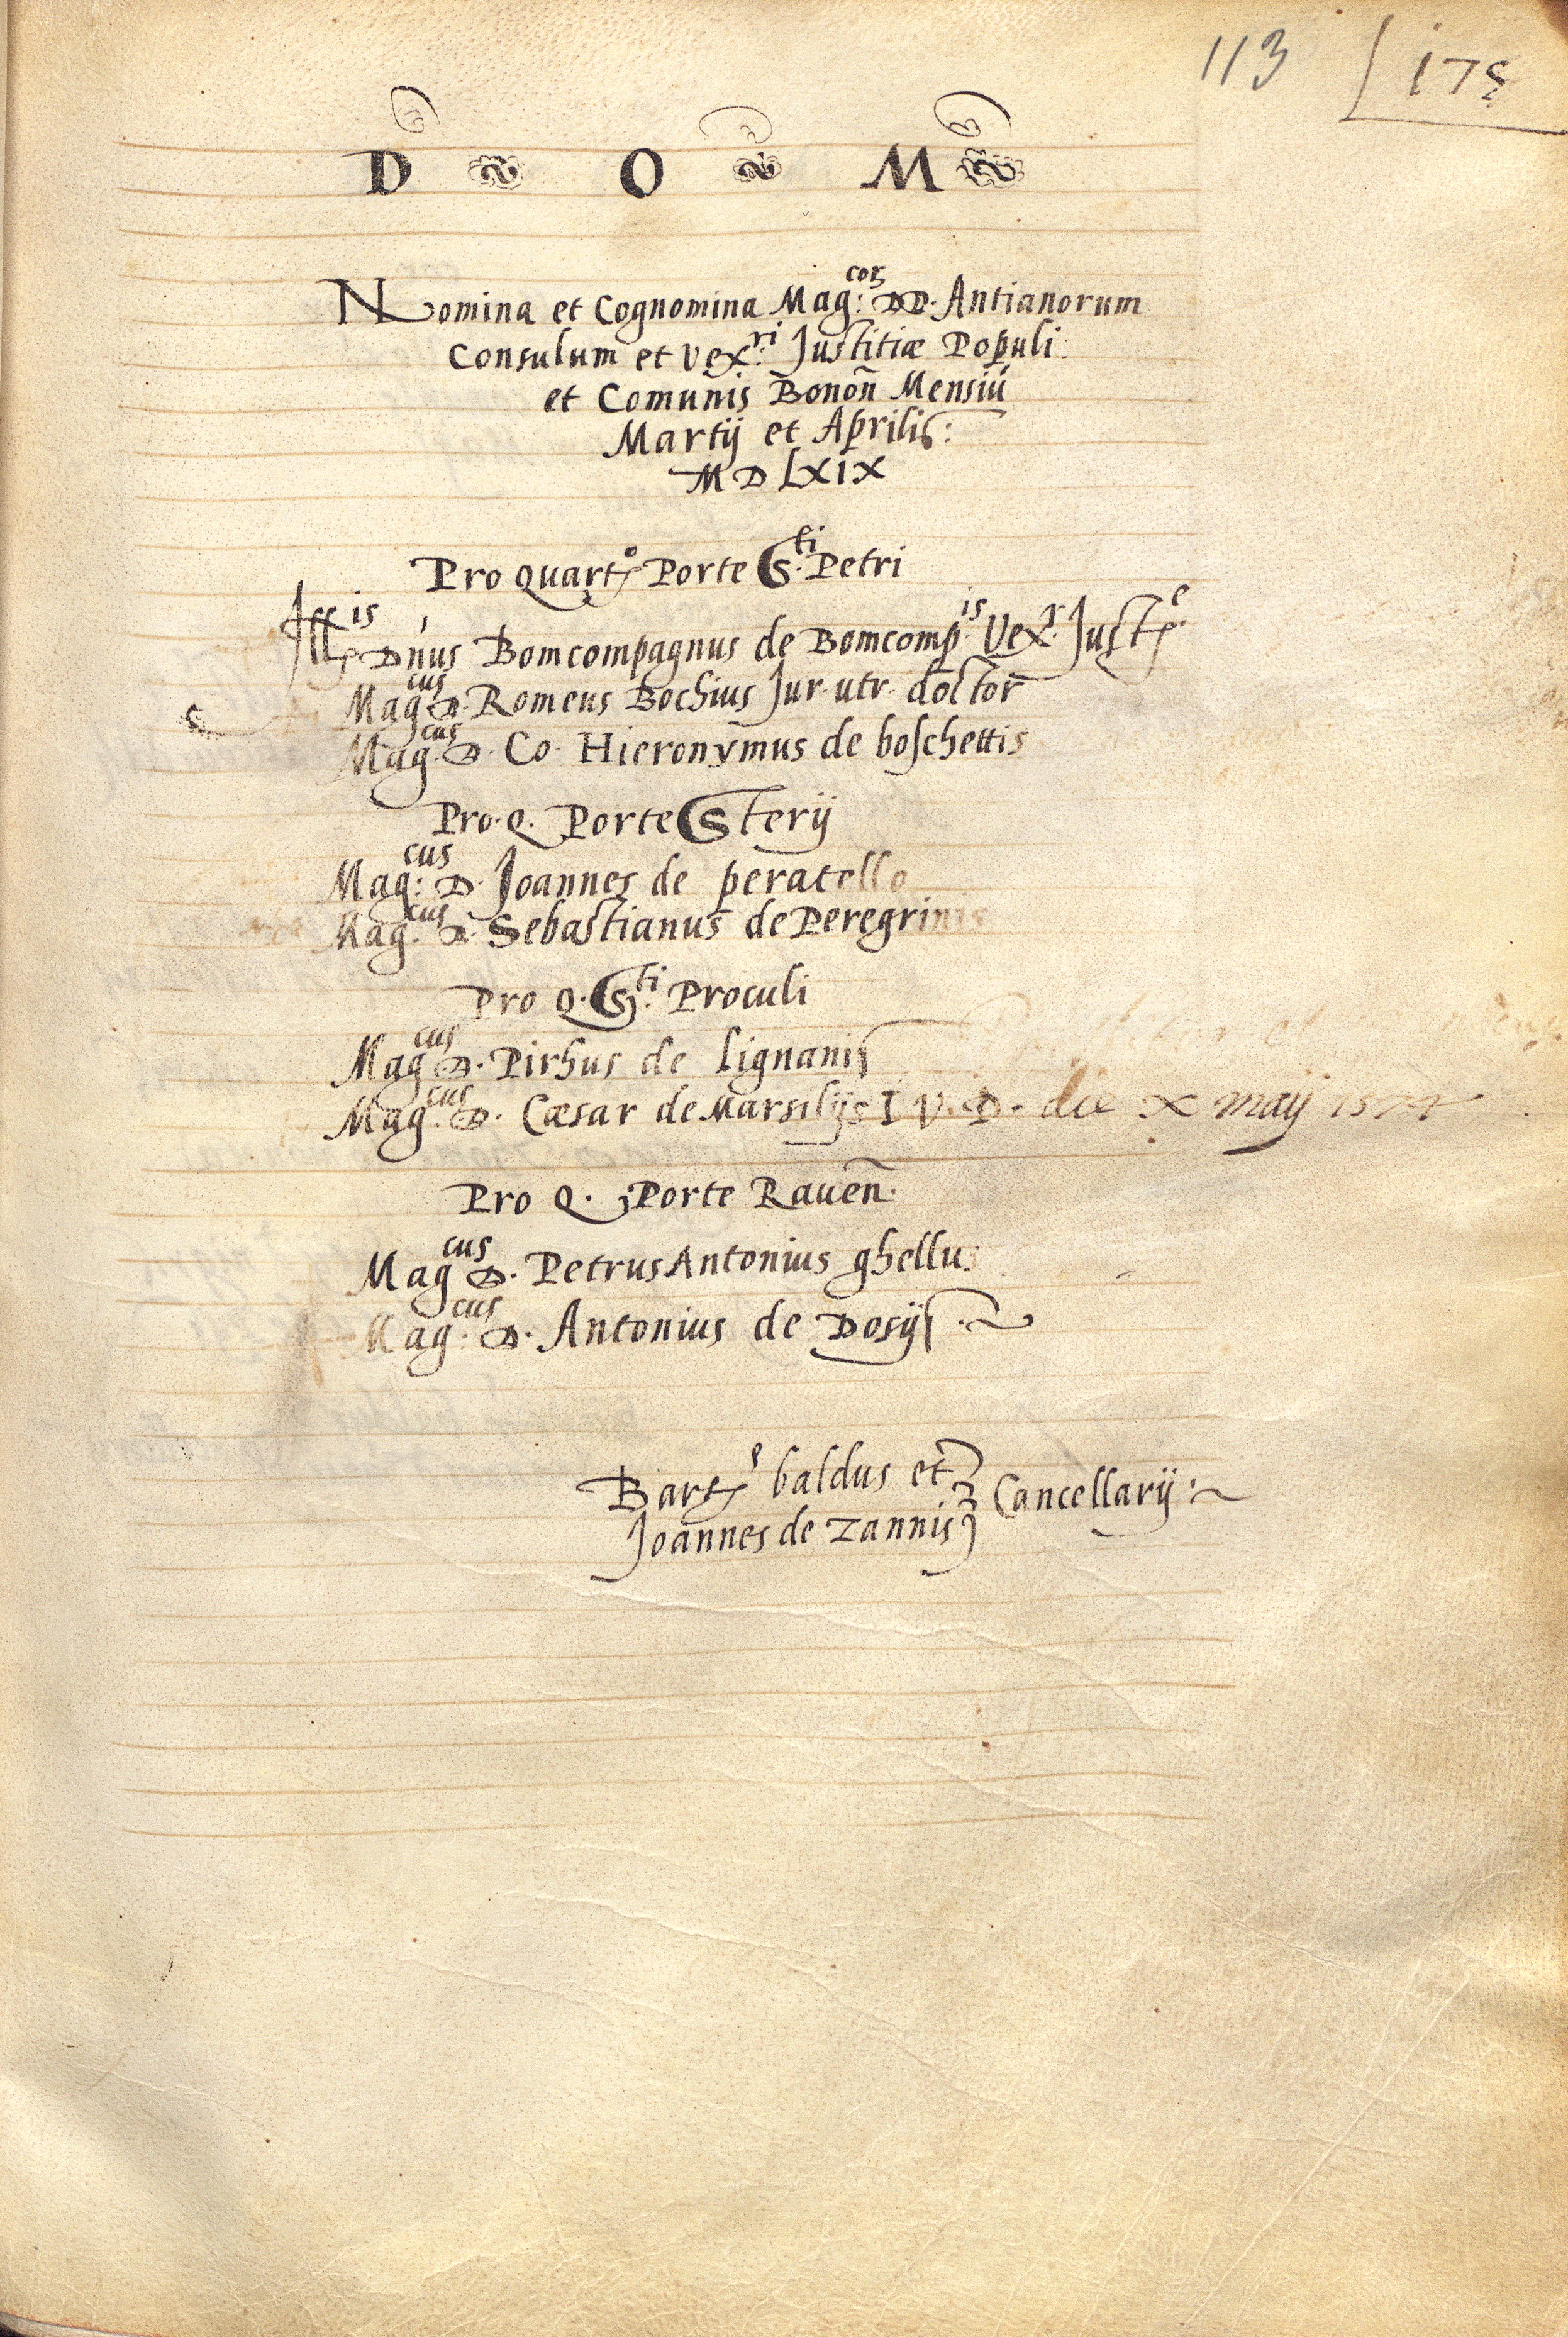 113 175
D O M
Nomina et Cognomina Mag:coꝝ DD. Antianorum
Consulum et Vex:ri Justitiæ Populi
et Comunis Bonoñ Mensiū
Martij et Aprilis:
MDLXIX
Pro Quart.o Porte S.ti Petri
Ill.is Dñus Bomcompagnus de Bomcomp.is Vex.r Just.e
Mag.cus D. Romeus Bochius Jur. utr. doctor
Mag.cus D. Co. Hieronymus de boschettis
Pro. Q. Porte Sterij
Mag:cus D. Joannes de peratello
Mag.cus D. Sebastianus de Peregrinis
Pro Q. S.ti Proculi
Mag.cus D. Pirhus de Lignanis
Mag.cus D. Cæsar de Marsilijs I. V. D. die x maij
Pro Q. Porte Raueñ.
Mag.cus D. Petrus Antonius ghellus
Mag:cus D. Antonius de Dosijs
Bart.e baldus et
Joannes de Zannis Cancellarij: